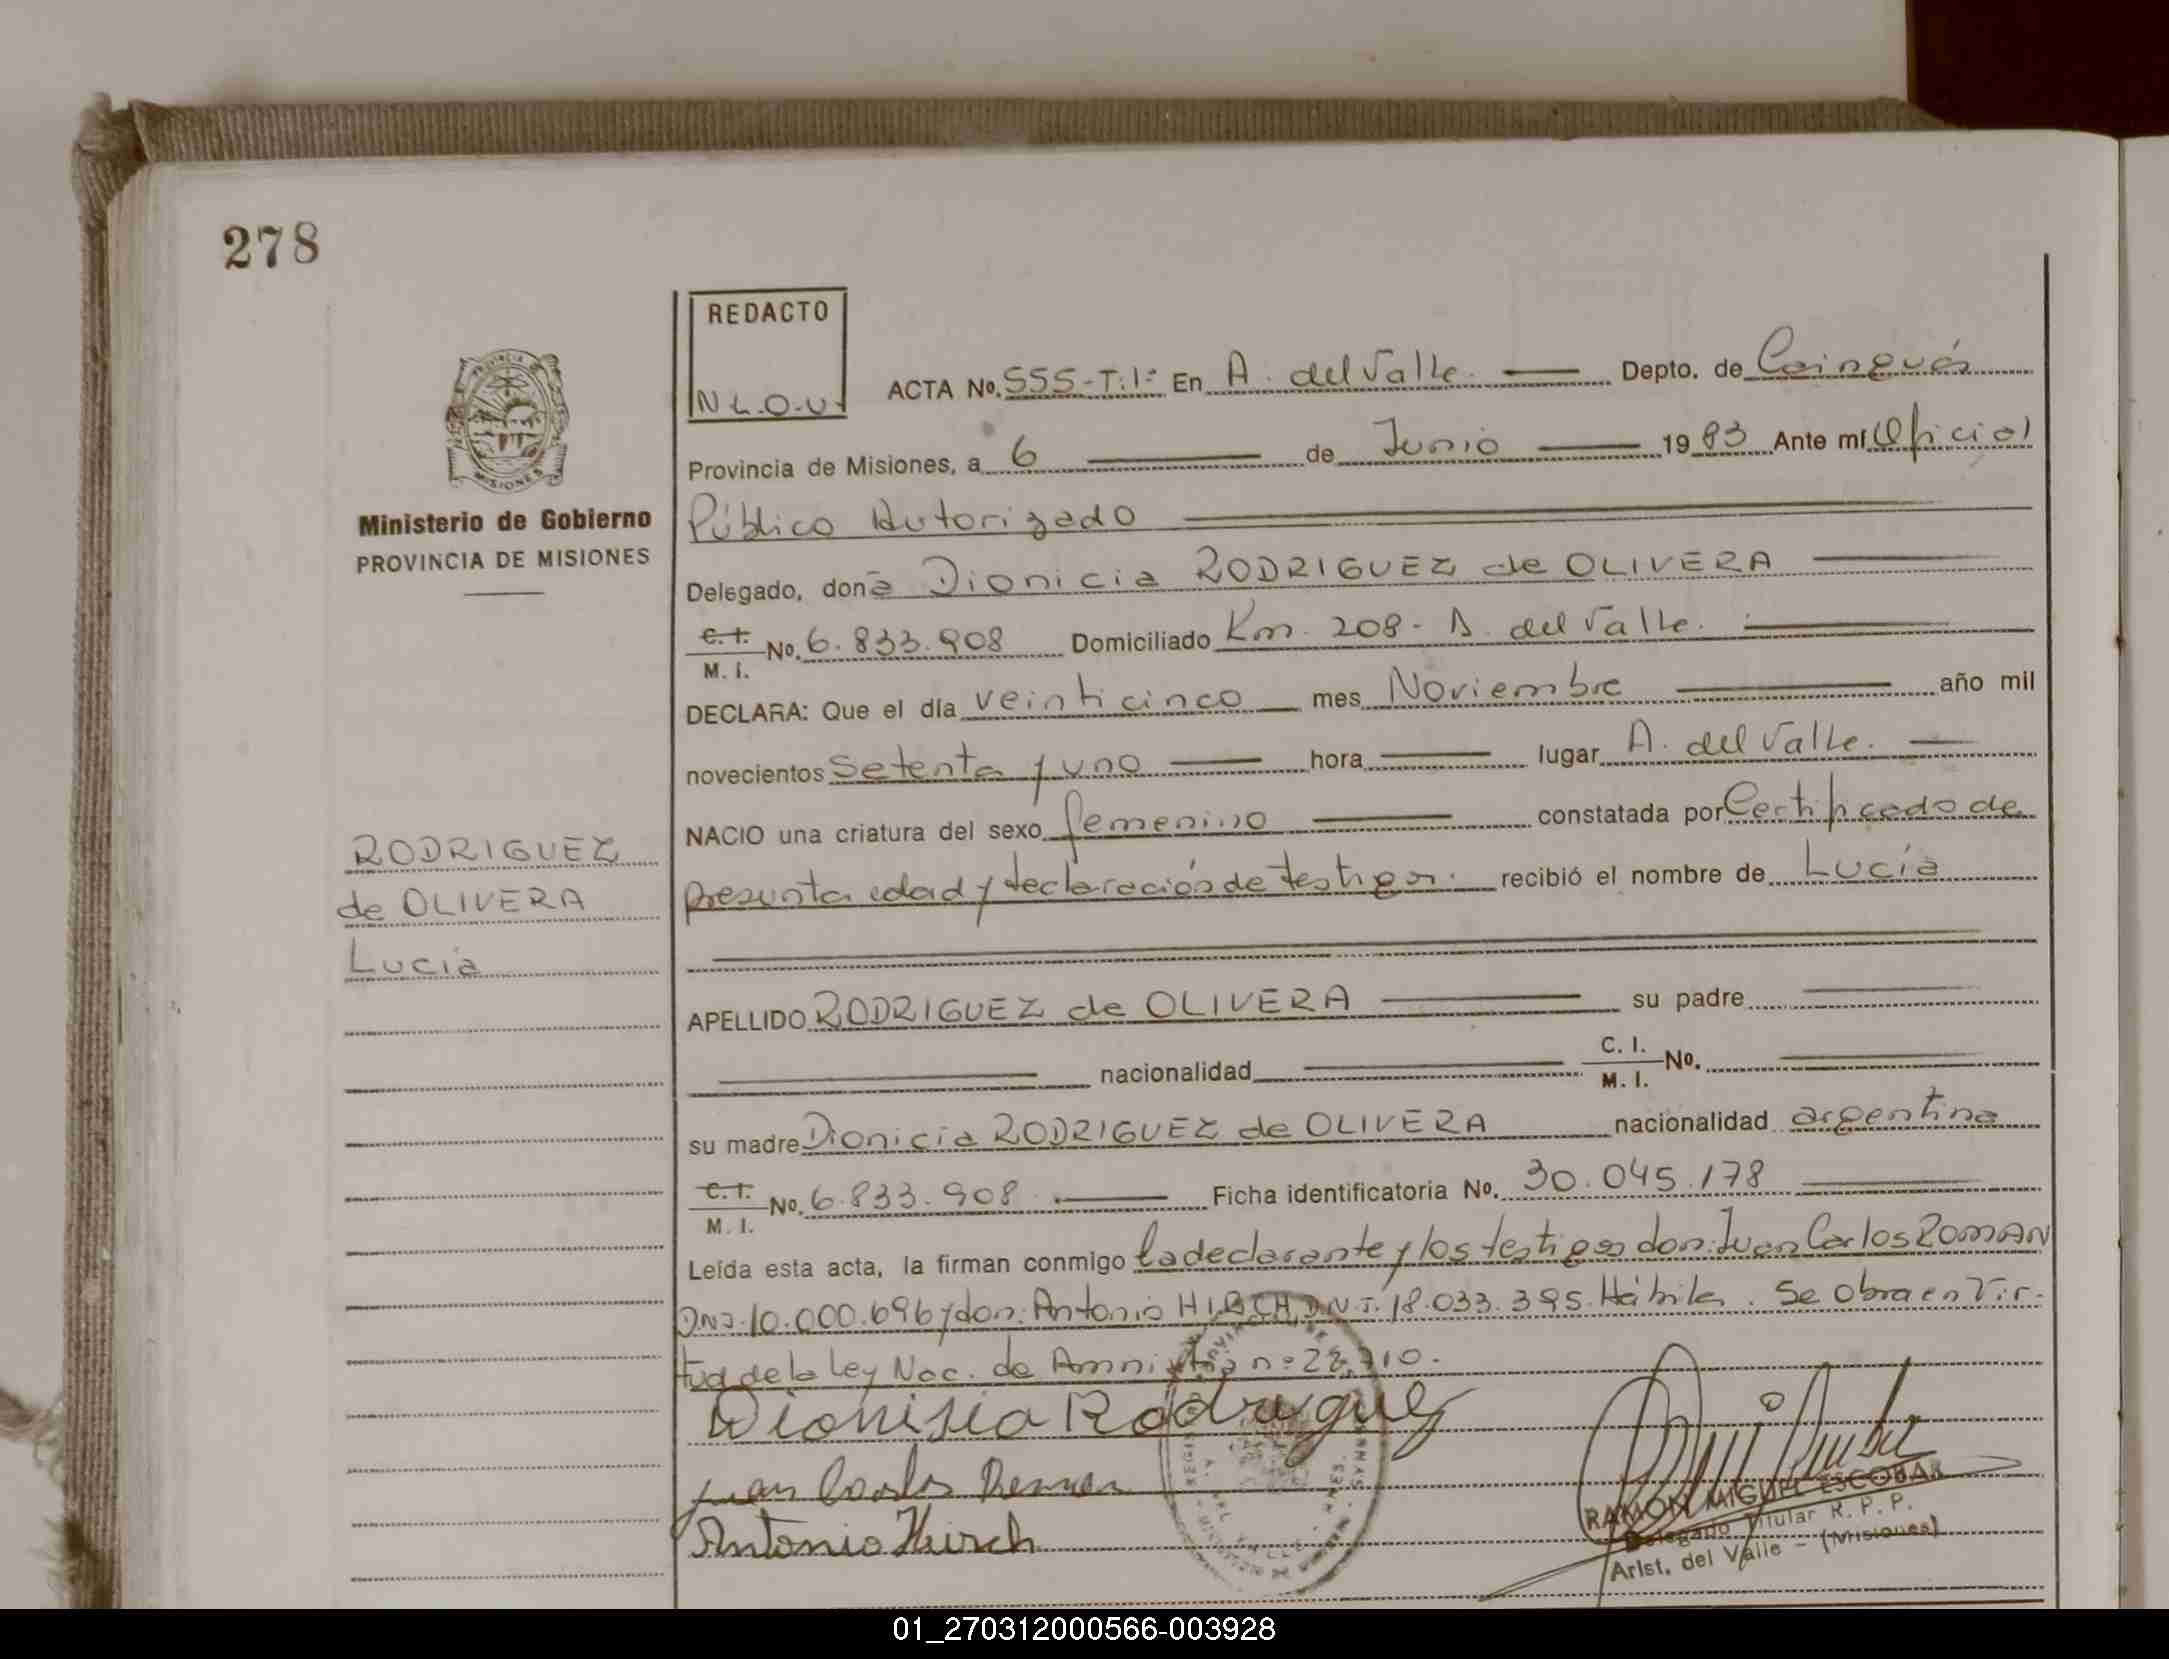 278
REDACTO
N L.O.U.
ACTA No. 555-T:1º En A. del Valle. Depto. de Cainguás
Provincia de Misiones, a 6 de Junio 1983 Ante mí Oficial
Público Autorizado
Ministerio de Gobierno
PROVINCIA DE MISIONES
Delegado, donã Dionicia RODRIGUEZ de OLIVERA
C. I.
M. I. No. 6.833.908 Domiciliado Km. 208- A. del Valle.
DECLARA: Que el día veinticinco mes Noviembre año mil
novecientos setenta y uno hora lugar A. del Valle.
NACIO una criatura del sexo femenino constatada por Certificado de
presunta edad y declaración de testigos. recibió el nombre de Lucía
RODRIGUEZ
de OLIVERA
Lucía
APELLIDO RODRIGUEZ de OLIVERA su padre
nacionalidad C. I.
M. I. No.
su madre Dionicia RODRIGUEZ de OLIVERA nacionalidad argentina
C. I.
M. I. No. 6.833.908 Ficha identificatoria No. 30.045.178
Leída esta acta, la firman conmigo la declarante y los testigos don: Juan Carlos ROMAN
DNI. 10.000.696 y don: Antonio HIRCH, D.N.I. 18.033.395. Hábiles. Se obra en Vir-
tud de la Ley Nac. de Amnistía nº 22.710.
Dionisia Rodriguez
Juan Carlos Roman
Antonio Hirch
RAMON MIGUEL ESCOBAR
Delegado Titular R. P. P.
Arist. del Valle - (Misiones)
01_270312000566-003928